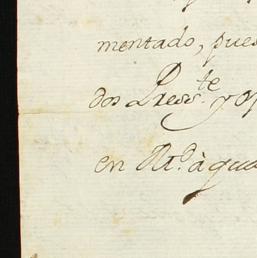 mentado, pues
dos Press.te y
en R.do à qua